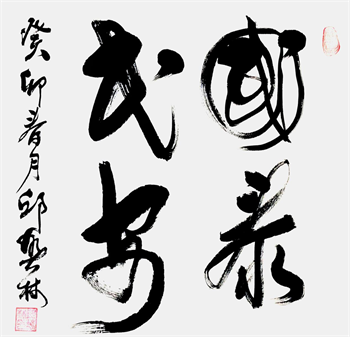 國泰
民安
癸卯春月邱林